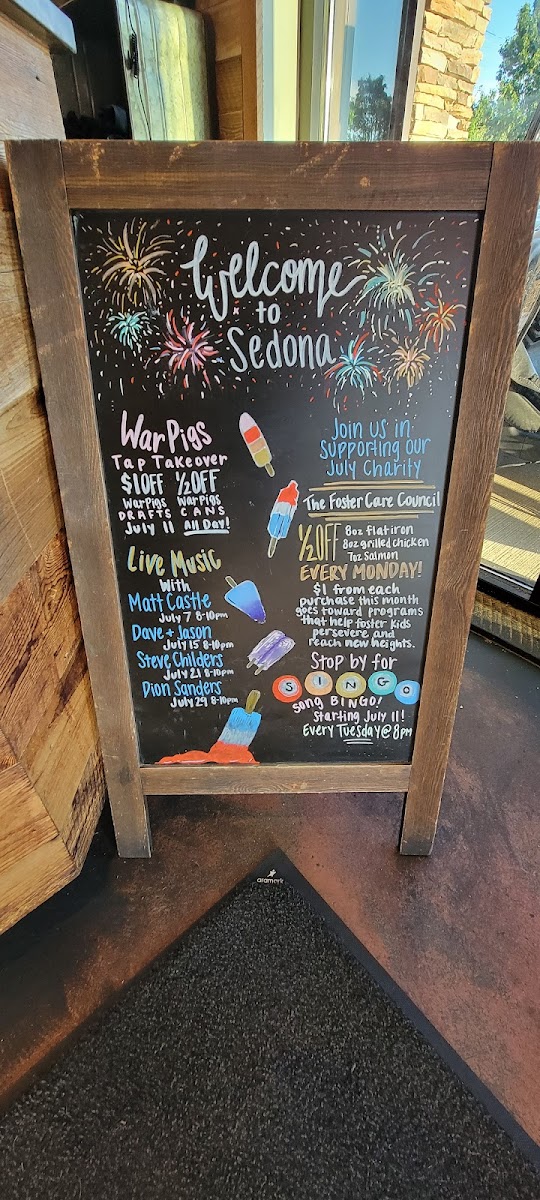 Welcome
to
Sedona
WarPigs
Tap Takeover
$1OFF ½OFF
WarPigs WarPigs
DRAFTS CANS
July 11 All Day!
Live Music
With
Matt Castle
July 7 8-10pm
Dave + Jason
July 15 8-10pm
Steve Childers
July 21 8-10pm
Dion Sanders
July 29 8-10pm
Join us in
supporting our
July Charity
The Foster Care Council
½OFF 8oz flatiron
8oz grilled chicken
7oz Salmon
EVERY MONDAY!
$1 from each
purchase this month
goes toward programs
that help foster kids
persevere and
reach new heights.
Stop by for
SINGO
song BINGO!
starting July 11!
Every Tuesday @ 8pm
aramark